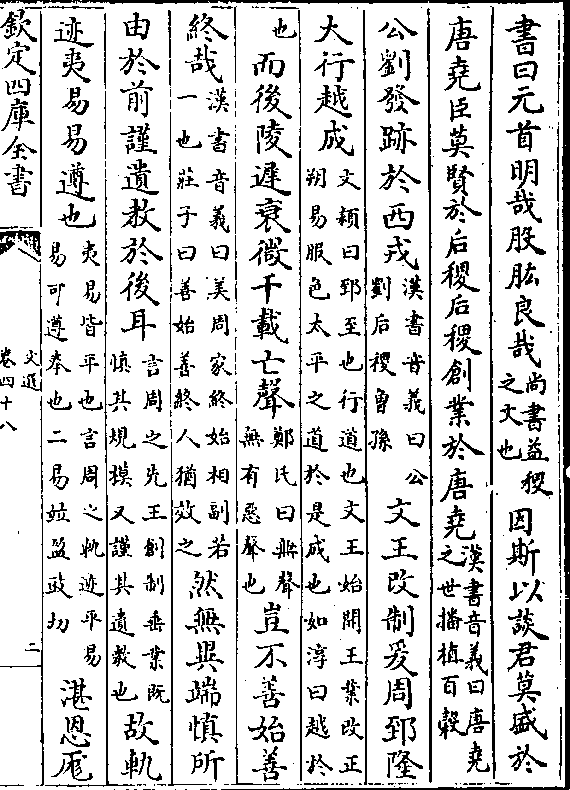 書曰元首明哉股肱良哉尚書益稷之文也因斯以談君莫盛於
唐堯臣莫賢於后稷后稷創業於唐堯漢書音義曰唐堯之世播植百穀
公劉發跡於西戎漢書音義曰公劉后稷曾孫文王改制爰周郅隆
大行越成文頴曰郅至也行道也文王始開王業改正朔易服色太平之道於是成也如淳曰越於
也而後陵遲衰微千載亡聲鄭氏曰無聲無有惡聲也豈不善始善
終哉漢書音義曰美周家終始相副若一也莊子曰善始善終人猶效之然無異端慎所
由於前謹遺教於後耳言周之先王創制垂業既慎其規摸又謹其遺教也故軌
迹夷易易遵也夷易皆平也言周之軌迹平易易可遵奉也二易竝盈豉切湛恩厖
欽定四庫全書
文選
卷四十八
二